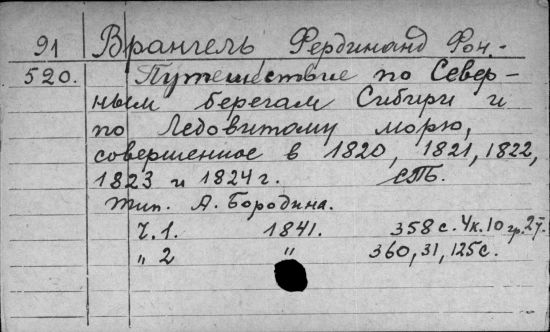 91 Врангель Фердинанд Фон.-
520. Путешествие по Север-
ным берегам Сибири и
по Ледовитому морю,
совершенное в 1820, 1821, 1822,
1823 и 1824 г. СПБ.
Тип. А. Бородина.
Ч. 1. 1841. 358 с. 4к. 10 гр. 2т.
„ 2 „ 360, 31, 125 с.